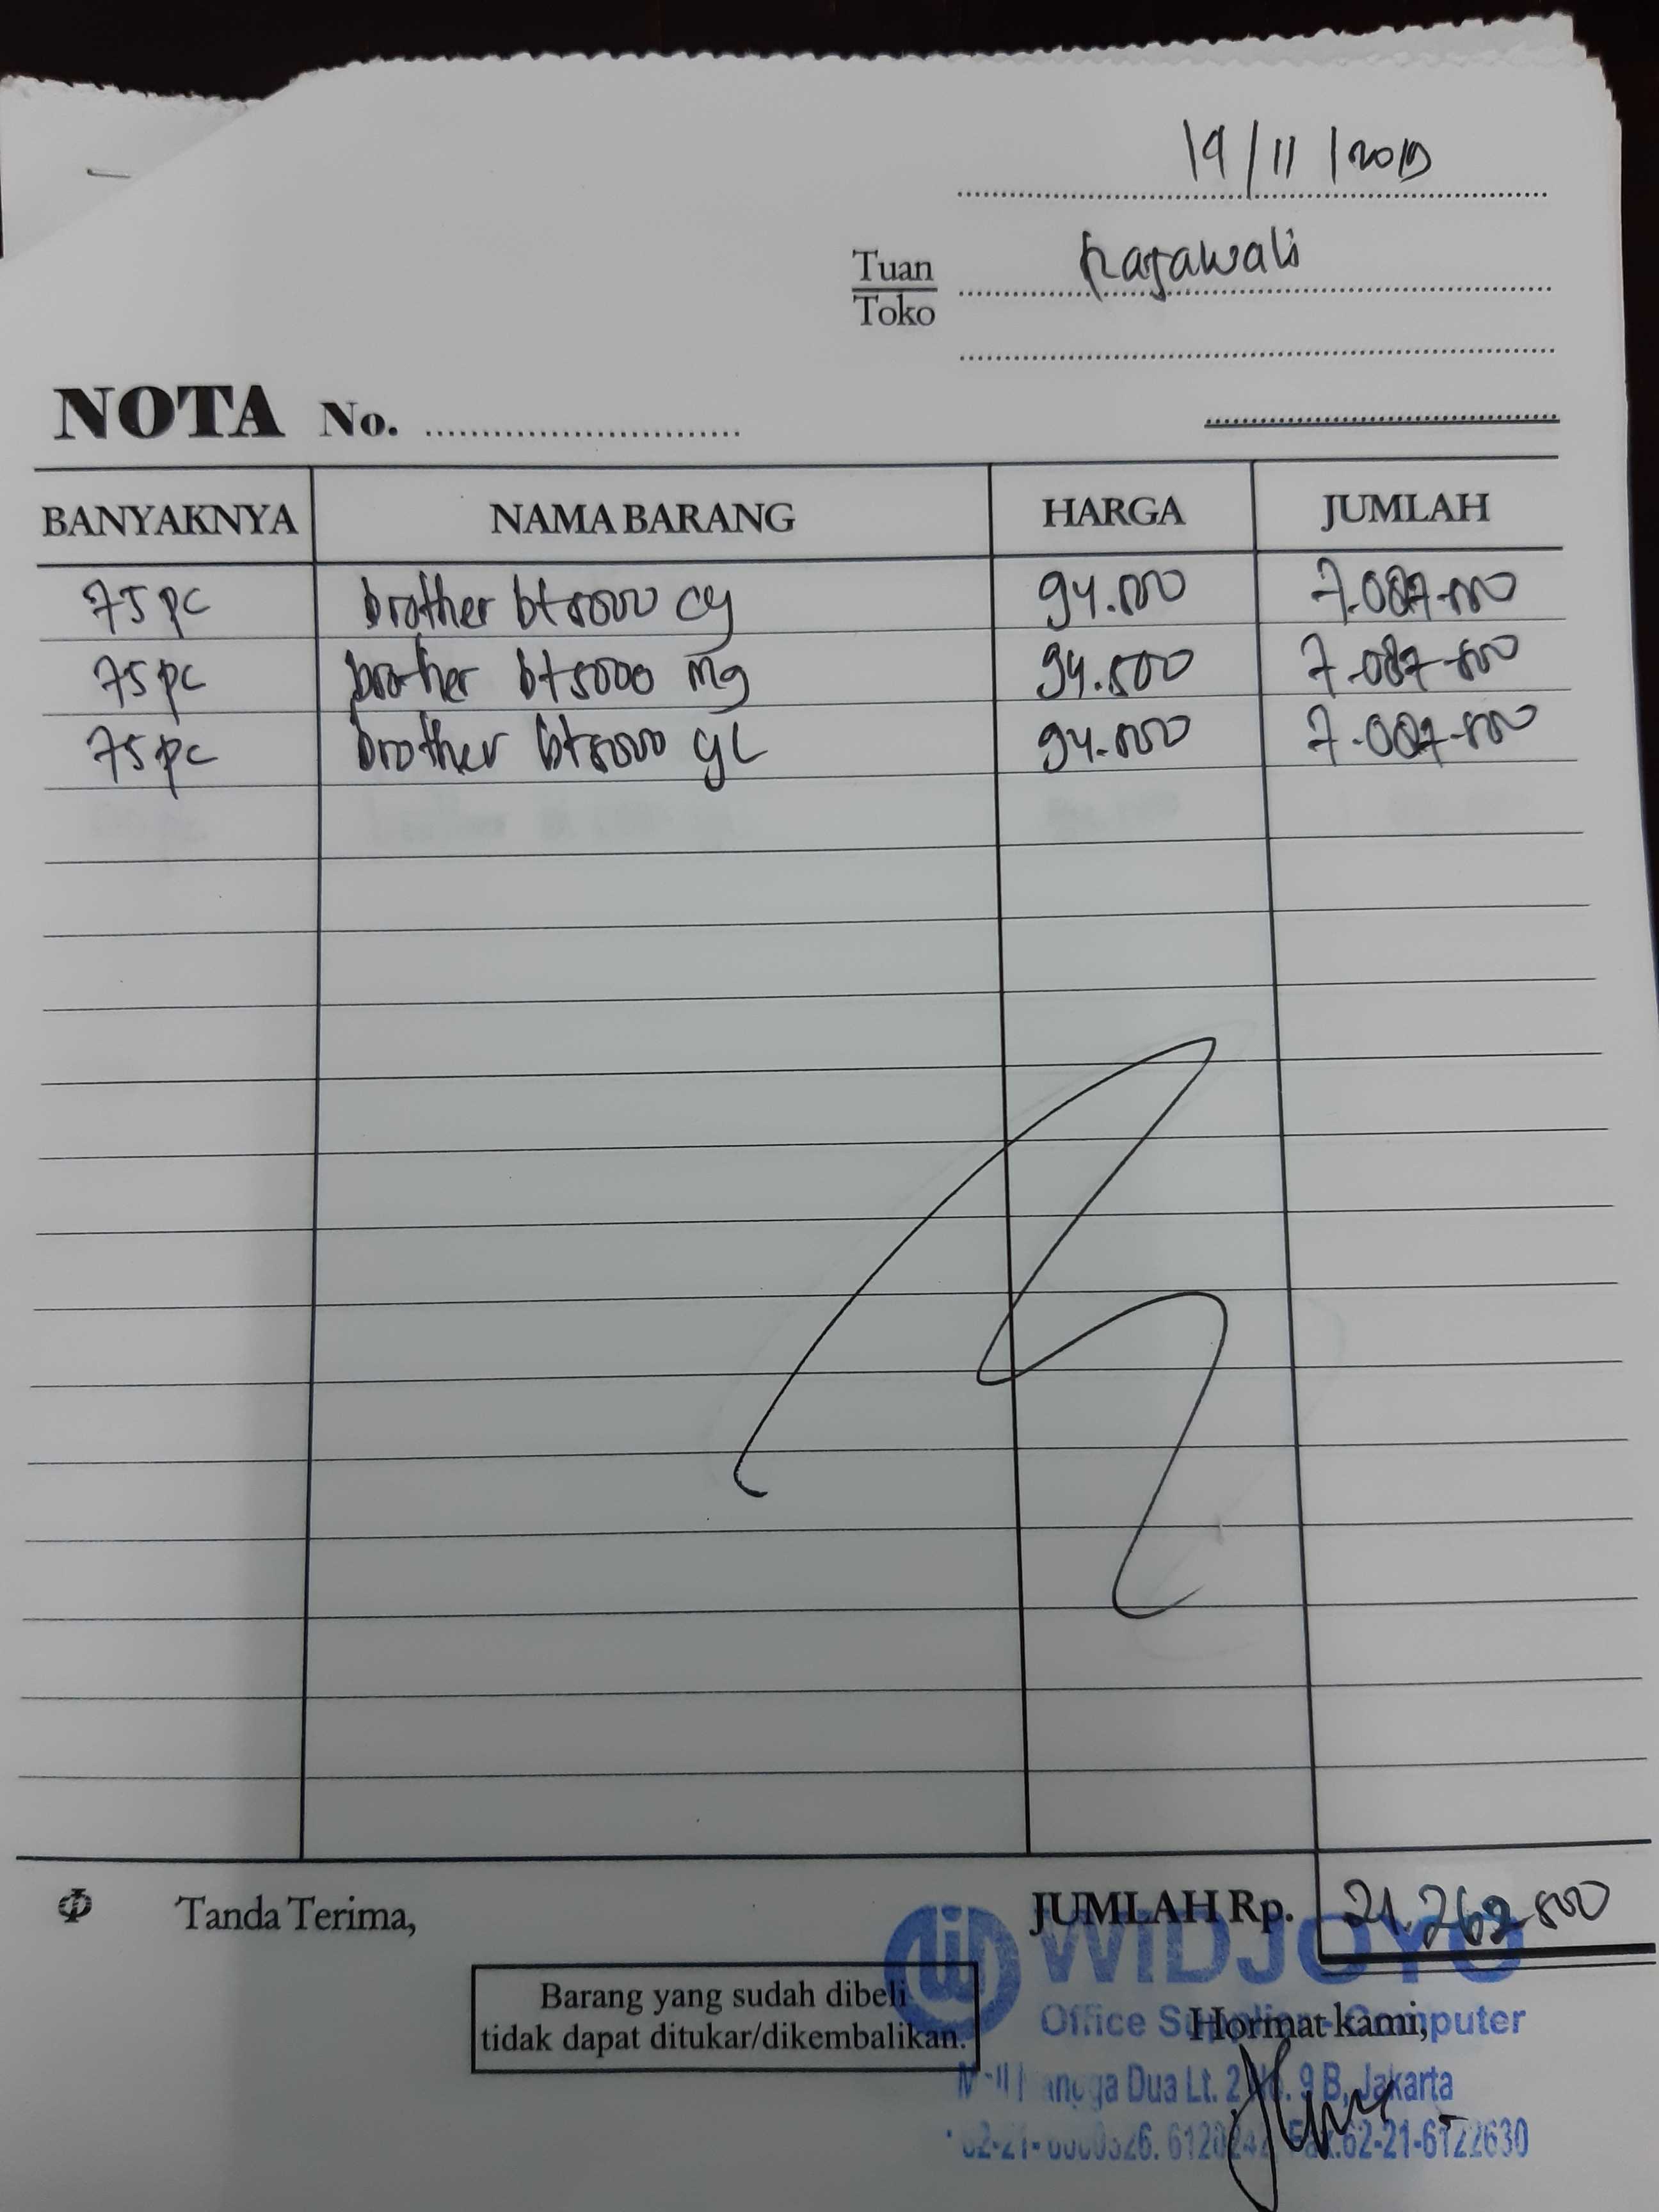 19/11/2019
Tuan
Toko
Rajawali
NOTA No.
BANYAKNYA NAMA BARANG HARGA JUMLAH
75 pc brother bt5000 cy 94.500 7.087.500
75 pc brother bt5000 mg 94.500 7.087.500
75 pc brother bt5000 yl 94.500 7.087.500
Tanda Terima,
JUMLAH Rp. 21.262.500
WIDJOYO
Barang yang sudah dibeli
tidak dapat ditukar/dikembalikan.
Office Computer
Hormat kami,
Dua Lt. 2 9 B, Jakarta
Fax.62-21-6122630